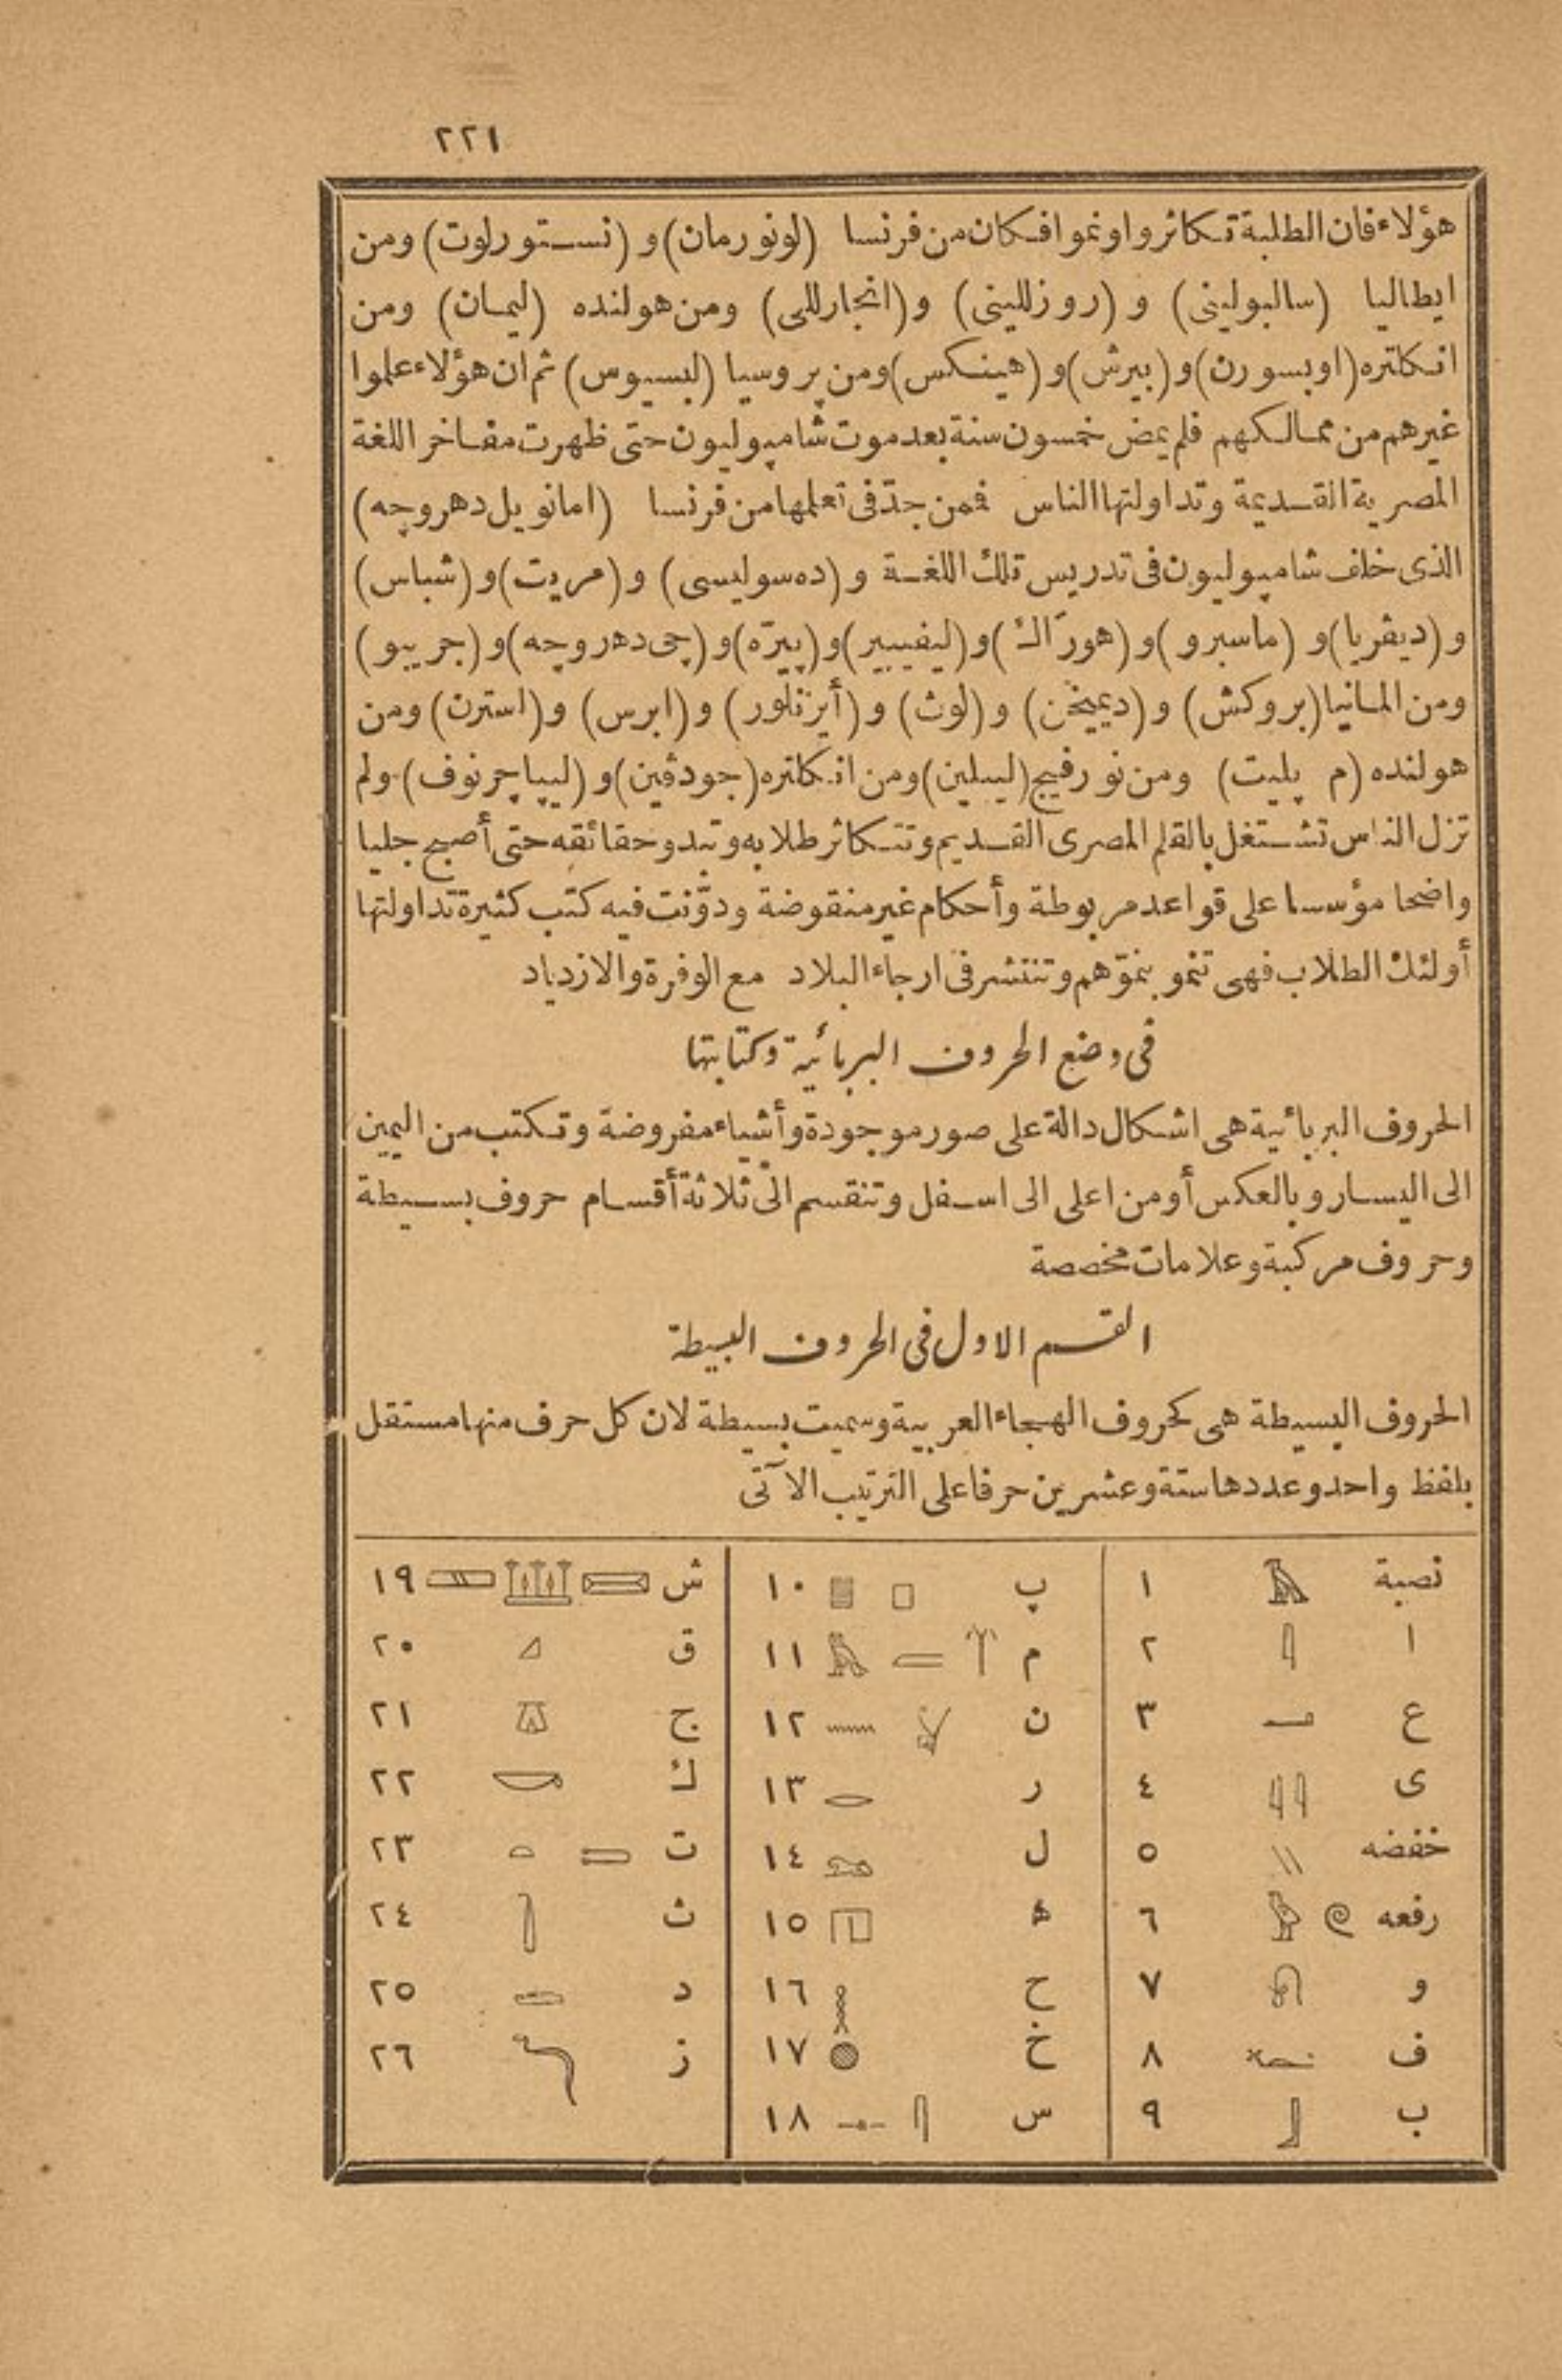 ٢٢١
هؤلاء فان الطلبة تكاثروا ونموا فكان من فرنسا (لونورمان) و (نستورلوت) ومن
ايطاليا (سالبولينى) و (روزللينى) و (انجارللى) ومن هولنده (ليمان) ومن
انكلتره (اوبسورن) و (بيرش) و (هينكس) ومن پروسيا (لبسيوس) ثم ان هؤلاء علموا
غيرهم من ممالكهم فلم يمض خمسون سنة بعد موت شامپوليون حتى ظهرت مفاخر اللغة
المصرية القديمة وتداولتها الناس فمن جدّ فى تعلمها من فرنسا (امانويل دهروچه)
الذى خلف شامپوليون فى تدريس تلك اللغة و (ده سوليسى) و (مريت) و (شباس)
و (ديڤريا) و (ماسبرو) و (هورّاك) و (ليفيبير) و (پيرّه) و (چى دهروچه) و (جريبو)
ومن المانيا (بروكش) و (ديميخن) و (لوث) و (أيزنلور) و (ابرس) و (استرن) ومن
هولنده (م پليت) ومن نورفيج (ليبلين) ومن انكلتره (جودڤين) و (ليپاچرنوف) ولم
تزل الناس تشتغل بالقلم المصرى القديم وتتكاثر طلابه وتبدو حقائقه حتى أصبح جليا
واضحا مؤسسا على قواعد مربوطة وأحكام غير منقوضة ودوّنت فيه كتب كثيرة تداولتها
أولئك الطلاب فهى تنمو بنموّهم وتنتشر فى ارجاء البلاد مع الوفرة والازدياد
فى وضع الحروف البربائية وكتابتها
الحروف البربائية هى اشكال دالة على صور موجودة وأشياء مفروضة وتكتب من اليمين
الى اليسار وبالعكس أو من اعلى الى اسفل وتنقسم الى ثلاثة أقسام حروف بسيطة
وحروف مركبة وعلامات مخصصة
القسم الاول فى الحروف البسيطة
الحروف البسيطة هى كحروف الهجاء العربية وسميت بسيطة لان كل حرف منها مستقل
بلفظ واحد وعددها ستة وعشرين حرفا على الترتيب الآتى
نصبة ١
ا ٢
ع ٣
ى ٤
خفضه ٥
رفعه ٦
و ٧
ف ٨
ب ٩
پ ١٠
م ١١
ن ١٢
ر ١٣
ل ١٤
ه ١٥
ح ١٦
خ ١٧
س ١٨
ش ١٩
ق ٢٠
ج ٢١
ك ٢٢
ت ٢٣
ث ٢٤
د ٢٥
ز ٢٦